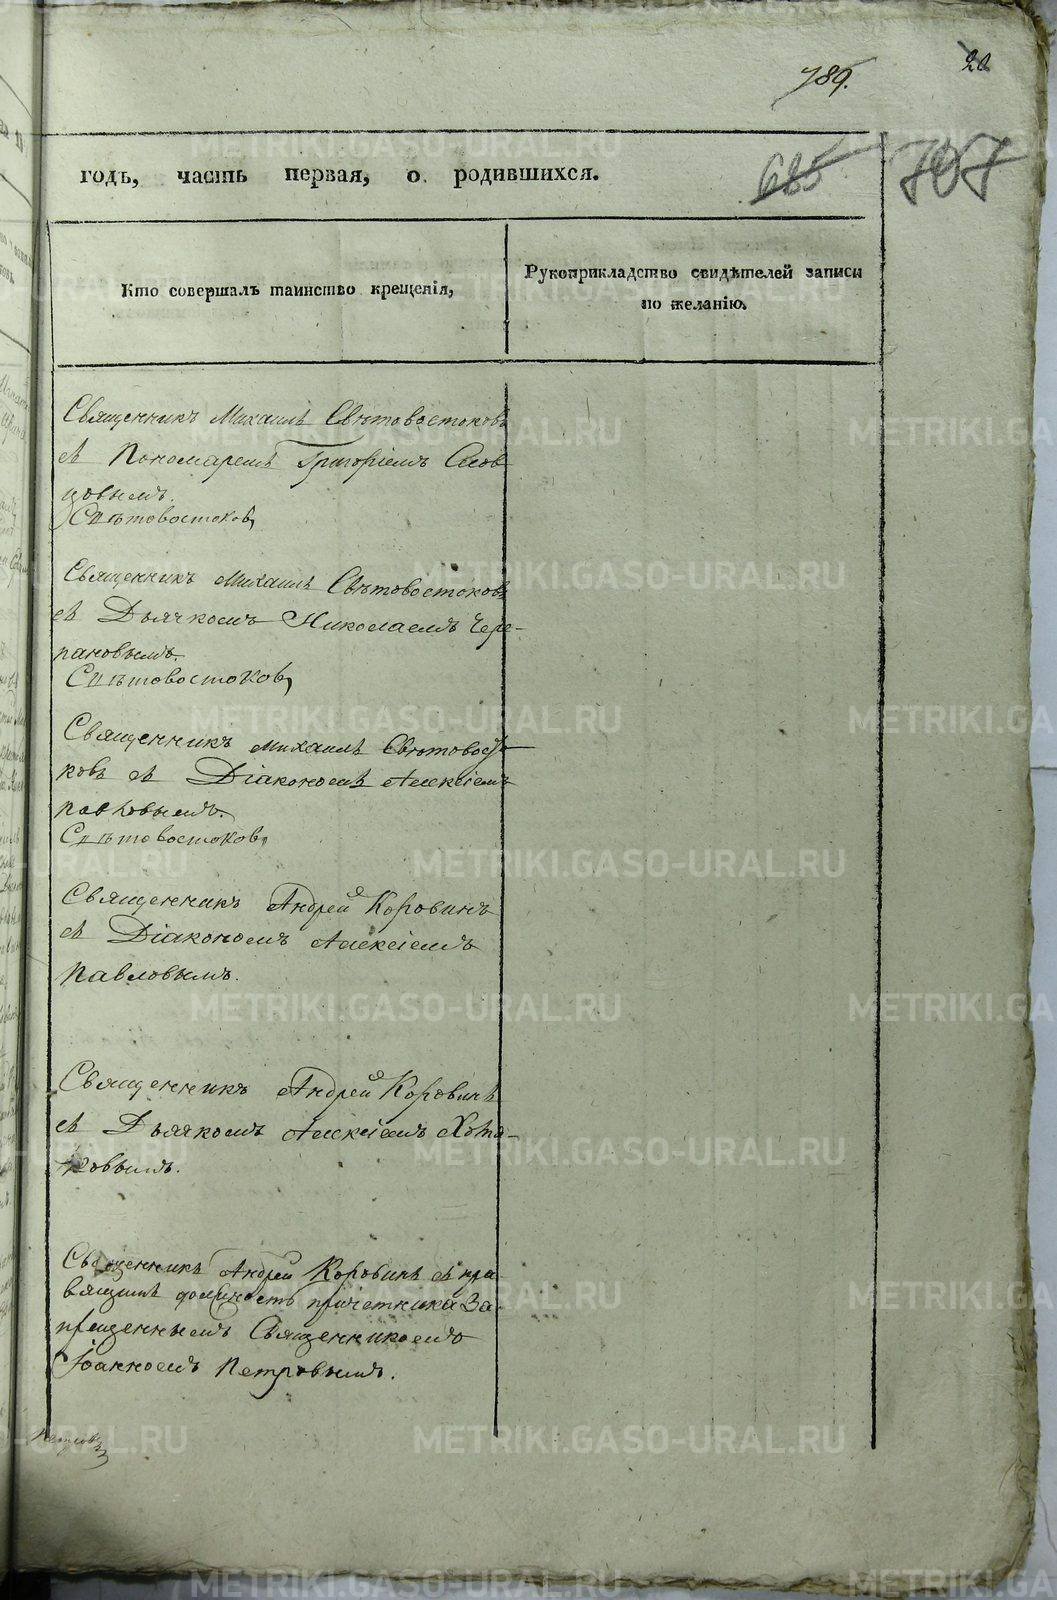 789.
20
685
707
годъ, часть первая, о родившихся.
Кто совершалъ таинство крещенія,
Рукоприкладство свидѣтелей записи
по желанію.
Священникъ Михаилъ Свѣтовостоковъ
съ Пономаремъ Григоріемъ Слов
цовымъ.
Свѣтовостоковъ
Священникъ Михаилъ Свѣтовостоковъ
съ Дьячкомъ Николаемъ Чере-
пановымъ.
Свѣтовостоковъ
Священникъ Михаилъ Свѣтовосто-
ковъ съ Діакономъ Алексіемъ
Павловымъ.
Свѣтовостоковъ
Священникъ Андрей Коровинъ
съ Діакономъ Алексіемъ
Павловымъ.
Священникъ Андрей Коровинъ
съ Дьячкомъ Алексіемъ Хотя-
ковымъ.
Священникъ Андрей Коровинъ съ пра
вящимъ должность причетника За
прещеннымъ Священникомъ
Іоанномъ Петровымъ.
METRIKI.GASO-URAL.RU